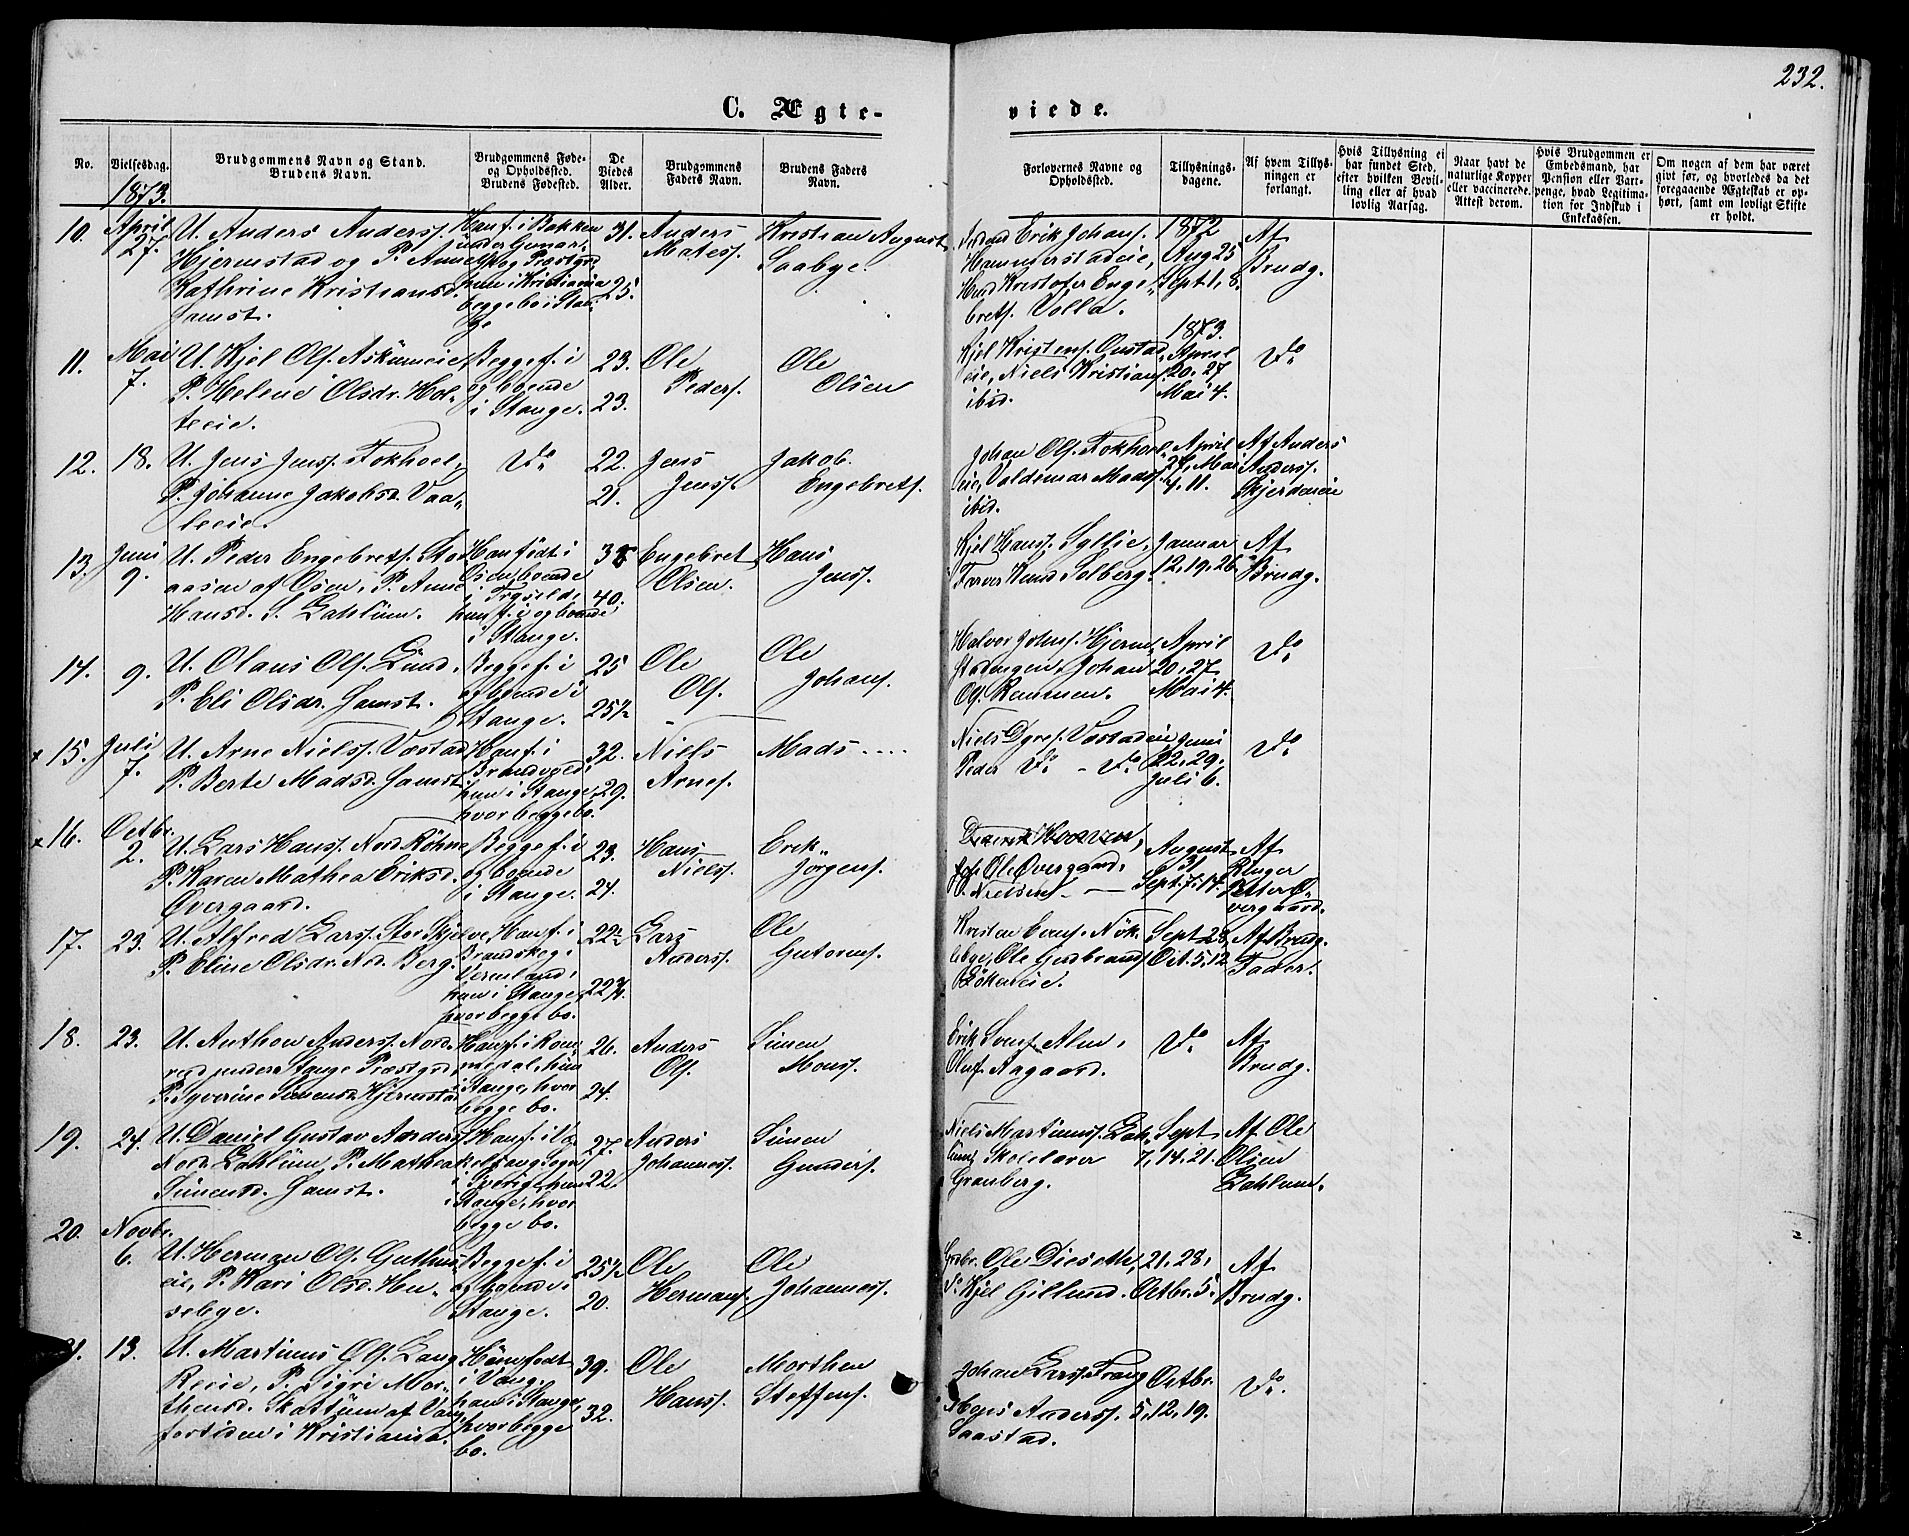 232.
C. Ægte-
viede.
No.
Vielsesdag.
Brudgommens Navn og Stand.
Brudens Navn.
Brudgommens Føde-
og Opholdssted.
Brudens Fødested.
De
Viedes
Alder.
Brudgommens
Faders Navn.
Brudens Faders
Navn.
Forlovernes Navne og
Opholdssted.
Tillysnings-
dagene.
Af hvem Tillys-
ningen er
forlangt.
Hvis Tillysning ei
har fundet Sted,
efter hvilken Bevil-
ling eller af hvad
lovlig Aarsag.
Naar havt de
naturlige Kopper
eller vaccinerede.
Attest derom.
Hvis Brudgommen er
Embedsmand, har
Pension eller Vart-
penge, hvad Legitima-
tion for Indskud i
Enkekassen.
Om nogen af dem har været
givt før, og hvorledes da det
foregaaende Ægteskab er op-
hørt, samt om lovligt Skifte
er holdt.
1873.
10.
April
27.
U. Anders Anders.
Hjermstad og P. Anne
Kathrine Kristiansd.
Jamst.
Han f. i Bakken
under
hun i Kristiania
begge bo i Stan-
ge
31.
25.
Anders
Mates.
Kristian August
Saabye.
Erik Johans.
Hammerstadeie,
Kristofer Enge-
brets. Volla.
1872
Aug 25
Sept 1, 8.
Af
Brudg.
11.
Mai
7.
U. Kjel Ols. Askimeie,
P. Helene Olsdr. Hol-
teeie.
Begge f. i
og boende
i Stange.
23.
23.
Ole
Peders.
Ole
Olsen
Kjel Kristens. Gustad
eie, Niels Kristians.
ibid.
1873.
April
20. 27
Mai 4.
Do
12.
18.
U. Jens Jens. Fokhoel,
P. Johanne Jakobsd. Vaa-
leeie.
Do
22.
21.
Jens
Jens.
Jakob
Engebrets.
Johan Ols. Fokhoel
eie, Valdemar Mads.
ibid.
April
27, Mai
4. 11.
Af Anders
Anders.
Skjerdeneie
13.
Juni
9.
U. Peder Engebrets. Sto
aasen af Osen, P. Anne
Hansd. S. Zahlüm.
Han født i
Osen, boende
i Trysild,
hun f. i og boende
i Stange.
40.
Engebret
Olsen.
Hans
Jens.
Kjel Hans. Syllie,
Farver Knud Solberg.
Januar
12. 19. 26.
Af
Brudg.
14.
9.
U. Olaus Ols. Lund.
P. Eli Olsdr. Jamst.
Begge f. i
og boende i
Stange.
25
25½
Ole
Ols.
Ole
Johans.
Halvor Johns. Hjerm-
stadengen, Johan
Ols. Rammen.
April
20. 27
Mai 4.
Do
× 15.
Juli
7.
U. Arne Niels. Væstad
P. Berte Madsd. Jamst.
Han f. i
hun i Stange,
hvor begge bo.
32.
29.
Niels
Arnes.
Mads ....
Niels Væstadeie
Peder Do - Do
Juni
22. 29.
Juli 6.
Do
× 16.
Octbr.
2.
U. Lars Hans. Nord Röhne
P. Karen Mathea Eriksd.
Øvergaard.
Begge f. i
og boende
i Stange.
23.
24.
Hans
Niels.
Erik
Jörgens.
Ole Øvergaard,
O. Nielsen —
August
31
Sept. 7. 14.
Af
Ringer
Petter Ø-
vergaard.
17.
23.
U. Alfred Lars. Stor Skjelve,
P. Eline Olsdr. Ned. Berg.
Han f. i
Brandskog i
Vermland,
hun i Stange,
hvor begge bo.
22½
22¾.
Lars
Anders.
Ole
Gutorms.
Kristen Evens. Nök-
lebye, Ole Gudbrands.
Bökeneie.
Sept 28,
Oct. 5. 12.
Af Brudg.
Fader.
18.
23.
U. Anthon Anders. Nord-
under Stange Præstgrd,
P. Syverine Simensd. Hjermstad
Han f. i Rom-
medal, hun
i Stange, hvor
begge bo.
26.
24.
Anders
Ols.
Simen
Mons.
Erik Svens. Alm,
Oluf Aagaard.
Do
Af
Brudg.
19.
24.
U. Daniel Gustav Anders.
Nord. Zahlüm, P. Mathea
Simensd. Jamst.
Han f. i
i Sverige, hun
i Stange, hvor
begge bo.
27.
22.
Anders
Johannes.
Simen
Gunders.
Niels Martinus. Zah-
lüm, Skolelærer
Granberg.
Sept
7, 14. 21.
Af Ole
Olsen
Zahlum.
20.
Novbr.
6.
U. Herman Ols. Guthus
eie, P. Kari Olsd. Hu-
sebye.
Begge f. i
og boende i
Stange.
25½
20.
Ole
Hermans.
Ole
Johannes.
Grdbr. Ole Dieseth,
Do Kjel Gillund.
21. 28,
Octbr. 5.
Af
Brudg.
21.
13.
U. Martinus Ols. Lang
Reeie, P. Sigri Mor-
thensd. Skattum af Vang
for tiden i Kristiania.
Han født
i Vang,
hun i Stange,
hvor begge
bo.
39.
32.
Ole
Hans.
Morthen
Steffens.
Johan Lars. Frang
Mons Anders.
Saastad.
Octbr.
5, 12, 19.
Do.